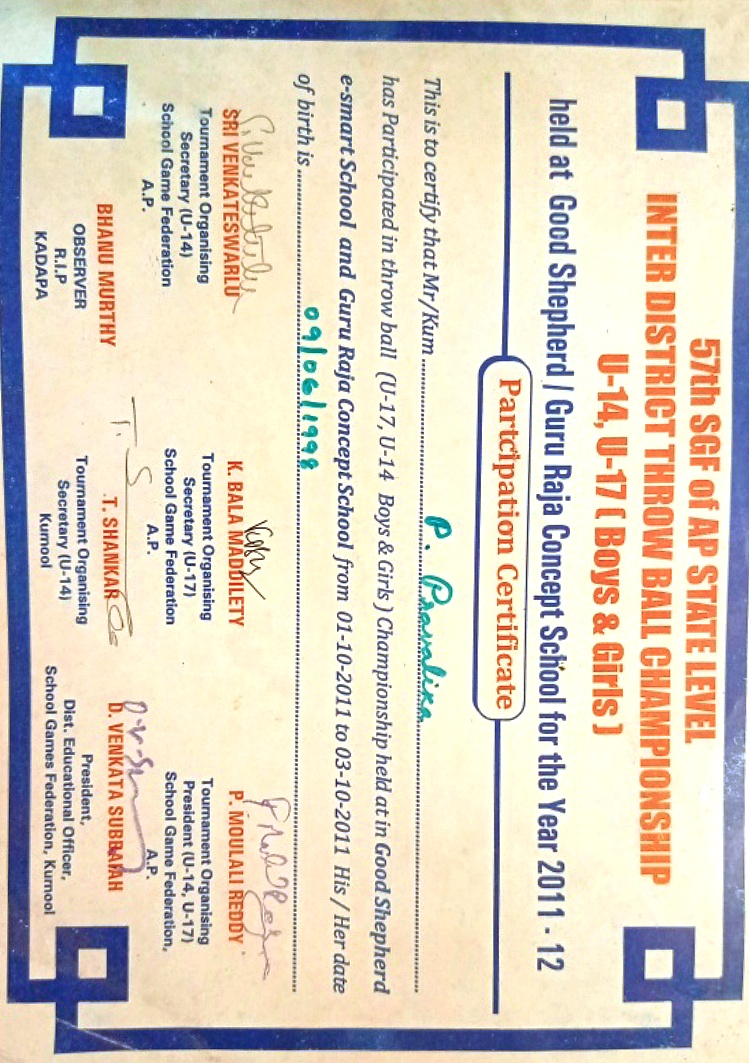 57th SGF of AP STATE LEVEL
INTER DISTRICT THROW BALL CHAMPIONSHIP
U-14, U-17 ( Boys & Girls )
held at Good Shepherd / Guru Raja Concept School for the Year 2011 - 12
Partcipation Certificate
This is to certify that Mr/Kum P. Pravalika
has Participated in throw ball (U-17, U-14 Boys & Girls ) Championship held at in Good Shepherd
e-smart School and Guru Raja Concept School from 01-10-2011 to 03-10-2011 His / Her date
of birth is 09/06/1998
SRI VENKATESWARLU
Tournament Organising
Secretary (U-14)
School Game Federation
A.P.
K. BALA MADDILETY
Tournament Organising
Secretary (U-17)
School Game Federation
A.P.
P. MOULALI REDDY
Tournament Organising
President (U-14, U-17)
School Game Federation,
A.P.
BHANU MURTHY
OBSERVER
R.I.P
KADAPA
T. SHANKAR
Tournament Organising
Secretary (U-14)
Kurnool
D. VENKATA SUBBAIAH
President,
Dist. Educational Officer,
School Games Federation, Kurnool